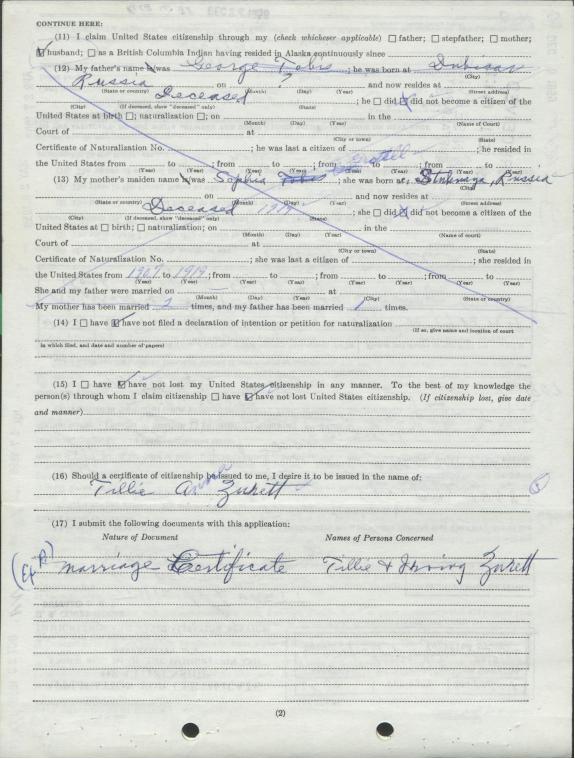 CONTINUE HERE:
(11) I claim United States citizenship through my (check whichever applicable) ☐ father; ☐ stepfather; ☐ mother;
☑ husband; ☐ as a British Columbia Indian having resided in Alaska continuously since
(12) My father's name is/was George Tobis; he was born at
(City)
Russia, on ? and now resides at
(State or country) (Month) (Day) (Year) (Street address)
Deceased; he ☐ did ☑ did not become a citizen of the
(City) (If deceased, show "deceased" only) (State)
United States at birth ☐; naturalization ☐; on in the
(Month) (Day) (Year) (Name of Court)
Court of at
(City or town) (State)
Certificate of Naturalization No. ; he was last a citizen of ; he resided in
the United States from to ; from to ; from to ; from to
(Year) (Year) (Year) (Year) (Year) (Year) (Year) (Year)
(13) My mother's maiden name is/was Sophia Tobis; she was born at, Russia
(City)
, on and now resides at
(State or country) (Month) (Day) (Year) (Street address)
Deceased 1919; she ☐ did ☑ did not become a citizen of the
(City) (If deceased, show "deceased" only) (State)
United States at ☐ birth; ☐ naturalization; on in the
(Month) (Day) (Year) (Name of court)
Court of at
(City or town) (State)
Certificate of Naturalization No. ; she was last a citizen of ; she resided in
the United States from 1907 to 1919; from to ; from to ; from to
(Year) (Year) (Year) (Year) (Year) (Year) (Year) (Year)
She and my father were married on at
(Month) (Day) (Year) (City) (State or country)
My mother has been married 2 times, and my father has been married 1 times.
(14) I ☐ have ☑ have not filed a declaration of intention or petition for naturalization
(If so, give name and location of court
in which filed, and date and number of papers)
(15) I ☐ have ☑ have not lost my United States citizenship in any manner. To the best of my knowledge the
person(s) through whom I claim citizenship ☐ have ☑ have not lost United States citizenship. (If citizenship lost, give date
and manner)
(16) Should a certificate of citizenship be issued to me, I desire it to be issued in the name of:
Tillie Zurett
(17) I submit the following documents with this application:
Nature of Document Names of Persons Concerned
(Ex A) Marriage Certificate Tillie & Irving Zurett
(2)